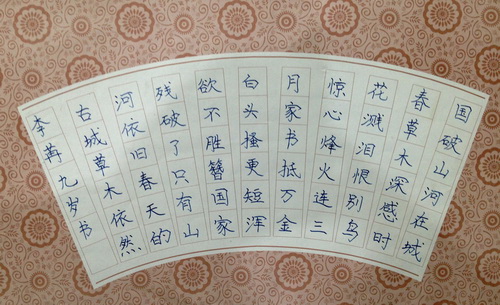 国破山河在城
春草木深感时
花溅泪恨别鸟
惊心烽火连三
月家书抵万金
白头搔更短浑
欲不胜簪国家
残破了只有山
河依旧春天的
古城草木依然
李苒九岁书